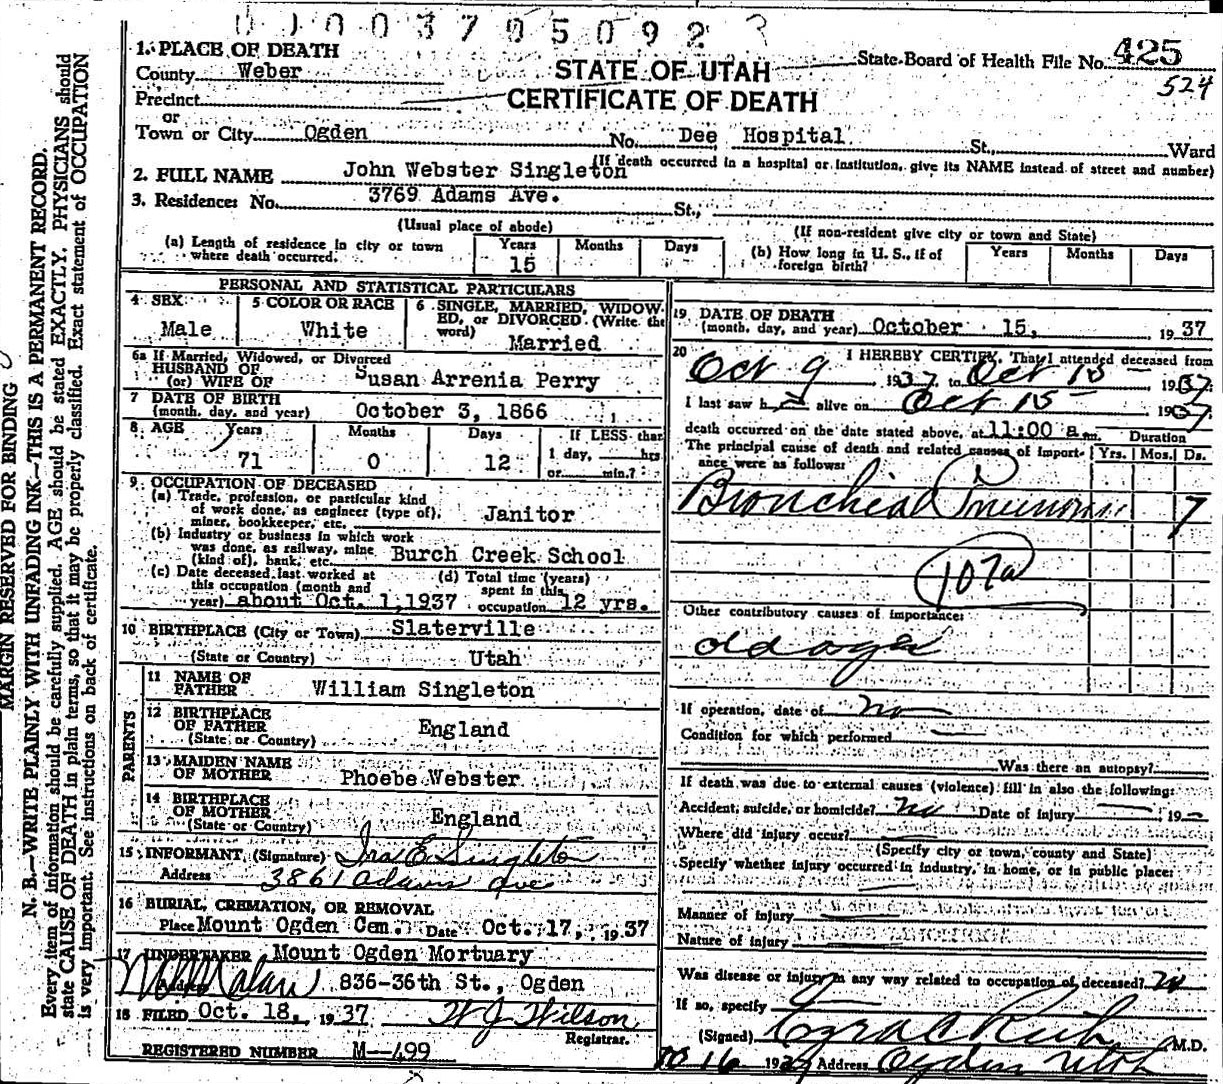 0 0 0 3 7 0 5 0 9 2
1. PLACE OF DEATH
County Weber
STATE OF UTAH
State Board of Health File No. 425
524
Precinct
CERTIFICATE OF DEATH
or
Town or City Ogden No. Dee Hospital St. Ward
(If death occurred in a hospital or institution, give its NAME instead of street and number)
2. FULL NAME John Webster Singleton
3. Residence: No. 3769 Adams Ave. St.,
(Usual place of abode) (If non-resident give city or town and State)
(a) Length of residence in city or town where death occurred. Years 15 Months Days
(b) How long in U. S., if of foreign birth? Years Months Days
PERSONAL AND STATISTICAL PARTICULARS
4 SEX Male
5 COLOR OR RACE White
6 SINGLE, MARRIED, WIDOWED, or DIVORCED. (Write the word) Married
6a If Married, Widowed, or Divorced
HUSBAND OF
(or) WIFE OF Susan Arrenia Perry
7 DATE OF BIRTH
(month, day, and year) October 3, 1866
8. AGE Years 71 Months 0 Days 12 If LESS than 1 day, hrs or min.?
9. OCCUPATION OF DECEASED
(a) Trade, profession, or particular kind
of work done, as engineer (type of),
miner, bookkeeper, etc. Janitor
(b) Industry or business in which work
was done, as railway, mine
(kind of), bank, etc. Burch Creek School
(c) Date deceased last worked at
this occupation (month and
year) about Oct. 1, 1937
(d) Total time (years)
spent in this
occupation 12 yrs.
10 BIRTHPLACE (City or Town) Slaterville
(State or Country) Utah
PARENTS
11 NAME OF
FATHER William Singleton
12 BIRTHPLACE
OF FATHER England
(State or Country)
13 MAIDEN NAME
OF MOTHER Phoebe Webster
14 BIRTHPLACE
OF MOTHER England
(State or Country)
15 INFORMANT, (Signature) Ira E. Singleton
Address 3861 Adams Ave
16 BURIAL, CREMATION, OR REMOVAL
Place Mount Ogden Cem. Date Oct. 17, 1937
17 UNDERTAKER Mount Ogden Mortuary
Address 836-36th St., Ogden
18 FILED Oct. 18, 1937 W J Wilson
Registrar.
REGISTERED NUMBER M--499
19 DATE OF DEATH
(month, day, and year) October 15, 1937
20 I HEREBY CERTIFY, That I attended deceased from
Oct 9 1937 to Oct 15 1937
I last saw h alive on Oct 15 1937
death occurred on the date stated above, at 11:00 a.m. Duration
The principal cause of death and related causes of importance were as follows: Yrs. Mos. Ds.
Bronchial Pneumonia 7
107a
Other contributory causes of importance:
old age
If operation, date of no
Condition for which performed
Was there an autopsy?
If death was due to external causes (violence) fill in also the following:
Accident, suicide, or homicide? no Date of injury 19
Where did injury occur?
(Specify city or town, county and State)
Specify whether injury occurred in industry, in home, or in public place:
Manner of injury
Nature of injury
Was disease or injury in any way related to occupation of deceased? no
If so, specify
(Signed) Ezra C Rich M.D.
10 16 19 Address Ogden Utah
MARGIN RESERVED FOR BINDING
N. B.—WRITE PLAINLY WITH UNFADING INK—THIS IS A PERMANENT RECORD.
Every item of information should be carefully supplied. AGE should be stated EXACTLY. PHYSICIANS should
state CAUSE OF DEATH in plain terms, so that it may be properly classified. Exact statement of OCCUPATION
is very important. See instructions on back of certificate.